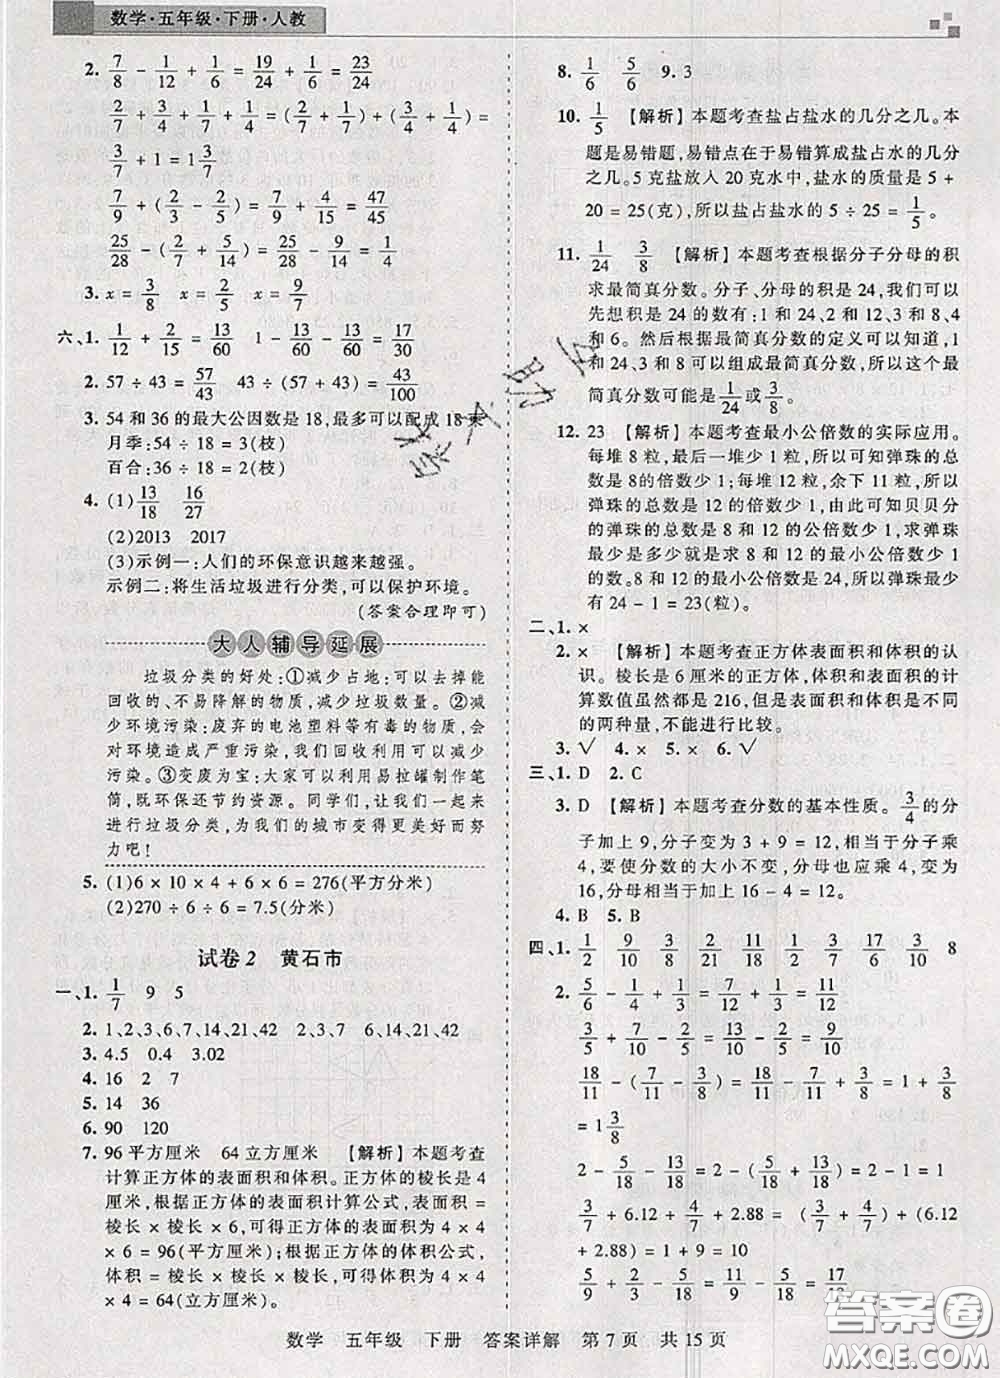 数学·五年级·下册·人教
2. 7/8 - 1/12 + 1/6 = 19/24 + 1/6 = 23/24
2/7 + 3/4 + 1/7 + 1/4 = (2/7 + 1/7) + (3/4 + 1/4) =
3/7 + 1 = 1 3/7
7/9 + (2/3 - 2/5) = 7/9 + 4/15 = 47/45
25/28 - (2/7 + 5/14) = 25/28 - 9/14 = 1/4
3. x = 3/8 x = 2/5 x = 9/7
六、1. 1/12 + 2/15 = 13/60 1 - 13/60 - 13/60 = 17/30
2. 57 ÷ 43 = 57/43 43 ÷ (57 + 43) = 43/100
3. 54 和 36 的最大公因数是 18,最多可以配成 18 束
月季:54 ÷ 18 = 3(枝)
百合:36 ÷ 18 = 2(枝)
4. (1) 13/18 16/27
(2)2013 2017
(3)示例一:人们的环保意识越来越强。
示例二:将生活垃圾进行分类,可以保护环境。
(答案合理即可)
大人辅导延展
垃圾分类的好处:①减少占地:可以去掉能
回收的、不易降解的物质,减少垃圾数量。②减
少环境污染:废弃的电池塑料等有毒的物质,会
对环境造成严重污染,我们回收利用可以减少
污染。③变废为宝:大家可以利用易拉罐制作笔
筒,既环保还节约资源。同学们,让我们一起来
进行垃圾分类,为我们的城市变得更美好而努
力吧!
5. (1)6 × 10 × 4 + 6 × 6 = 276(平方分米)
(2)270 ÷ 6 ÷ 6 = 7.5(分米)
试卷2 黄石市
一、1. 1/7 9 5
2. 1、2、3、6、7、14、21、42 2、3、7 6、14、21、42
3. 4.5 0.4 3.02
4. 16 2 7
5. 14 36
6. 90 120
7. 96 平方厘米 64 立方厘米 【解析】本题考查
计算正方体的表面积和体积。正方体的棱长是 4
厘米,根据正方体的表面积计算公式,表面积 =
棱长 × 棱长 × 6,可得正方体的表面积为 4 × 4
× 6 = 96(平方厘米);根据正方体的体积公式,
体积 = 棱长 × 棱长 × 棱长,可得体积为 4 ×
4 × 4 = 64(立方厘米)。
8. 1/6 5/6 9. 3
10. 1/5 【解析】本题考查盐占盐水的几分之几。本
题是易错题,易错点在于易错算成盐占水的几分
之几。5 克盐放入 20 克水中,盐水的质量是 5 +
20 = 25(克),所以盐占盐水的 5 ÷ 25 = 1/5。
11. 1/24 3/8 【解析】本题考查根据分子分母的积
求最简真分数。分子、分母的积是 24,我们可以
先想积是 24 的数有:1 和 24、2 和 12、3 和 8、4
和 6。然后根据最简真分数的定义可以知道,1
和 24、3 和 8 可以组成最简真分数,所以这个最
简真分数可能是 1/24 或 3/8。
12. 23 【解析】本题考查最小公倍数的实际应用。
每堆 8 粒,最后一堆少 1 粒,所以可知弹珠的总数
是 8的倍数少 1;每堆 12 粒,余下 11 粒,所以
弹珠的总数是 12 的倍数少 1,由此可知贝贝分
的弹珠的总数是 8 和 12 的公倍数少 1,求弹珠
最少是多少就是求 8 和 12 的最小公倍数少 1。
8 和 12 的最小公倍数是 24,所以弹珠最少
有 24 - 1 = 23(粒)。
二、1. ×
2. × 【解析】本题考查正方体表面积和体积的认
识。棱长是 6 厘米的正方体,体积和表面积的计
算数值虽然都是 216,但是表面积和体积是不同
的两种量,不能进行比较。
3. √ 4. × 5. × 6. √
三、1. D 2. C
3. D 【解析】本题考查分数的基本性质。3/4 的分
子加上 9,分子变为 3 + 9 = 12,相当于分子乘
4,要使分数的大小不变,分母也应乘 4,变为
16,分母相当于加上 16 - 4 = 12。
4. B 5. B
四、1. 1/2 9/10 10/3 1/9 1/2 7/3 17/6 3/10 8
2. 5/6 - 1/4 + 1/3 = 7/12 + 1/3 = 11/12
3/5 + 7/10 - 2/5 = 13/10 - 2/5 = 9/10
18/11 - (7/11 - 3/8) = 18/11 - 7/11 + 3/8 = 1 + 3/8
= 1 3/8
2 - 5/18 - 13/18 = 2 - (5/18 + 13/18) = 2 - 1 = 1
3/7 + 6.12 + 4/7 + 2.88 = (3/7 + 4/7) + (6.12
+ 2.88) = 1 + 9 = 10
数学 五年级 下册 答案详解 第 7 页 共 15 页
答案圈
MXQE.COM